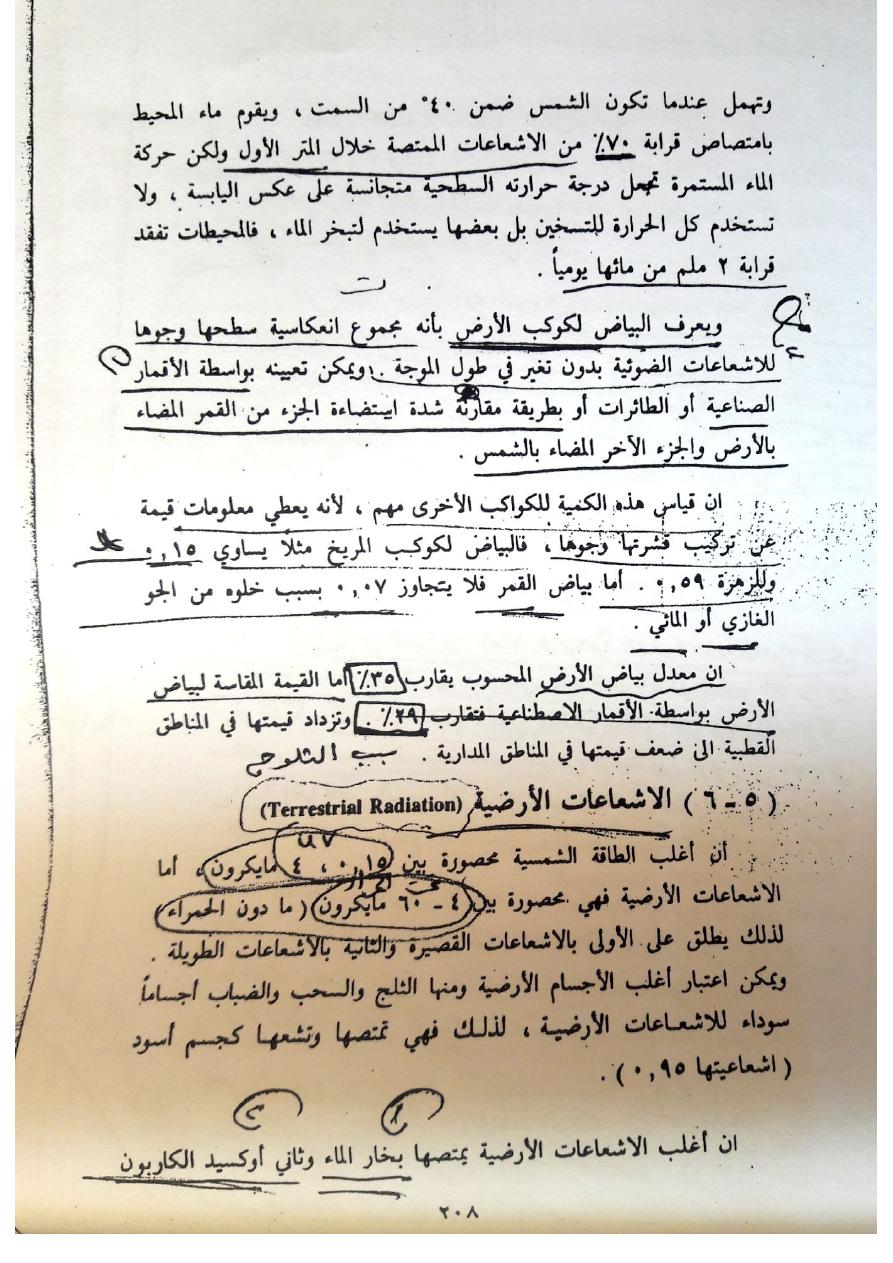 وتهمل عندما تكون الشمس ضمن ٤٠° من السمت ، ويقوم ماء المحيط
بامتصاص قرابة ٧٠٪ من الاشعاعات الممتصة خلال المتر الأول ولكن حركة
الماء المستمرة تجعل درجة حرارته السطحية متجانسة على عكس اليابسة ، ولا
تستخدم كل الحرارة للتسخين بل بعضها يستخدم لتبخر الماء ، فالمحيطات تفقد
قرابة ٢ ملم من مائها يومياً .
ويعرف البياض لكوكب الأرض بأنه مجموع انعكاسية سطحها وجوها
للاشعاعات الضوئية بدون تغير في طول الموجة . ويمكن تعيينه بواسطة الأقمار
الصناعية أو الطائرات أو بطريقة مقارنة شدة استضاءة الجزء من القمر المضاء
بالأرض والجزء الآخر المضاء بالشمس .
ان قياس هذه الكمية للكواكب الأخرى مهم ، لأنه يعطي معلومات قيمة
عن تركيب قشرتها وجوها ، فالبياض لكوكب المريخ مثلاً يساوي ٠,١٥
وللزهرة ٠,٥٩ . أما بياض القمر فلا يتجاوز ٠,٠٧ بسبب خلوه من الجو
الغازي أو المائي .
ان معدل بياض الأرض المحسوب يقارب ٣٥٪ أما القيمة المقاسة لبياض
الأرض بواسطة الأقمار الاصطناعية فتقارب ٢٩٪ . وتزداد قيمتها في المناطق
القطبية الى ضعف قيمتها في المناطق المدارية . سبب الثلوج
( ٥ - ٦ ) الاشعاعات الأرضية (Terrestrial Radiation)
uv
أن أغلب الطاقة الشمسية محصورة بين ٠,١٥ ، ٤ مايكرون ، أما
الاشعاعات الأرضية فهي محصورة بين ٤ - ٦٠ مايكرون ( ما دون الحمراء )
لذلك يطلق على الأولى بالاشعاعات القصيرة والثانية بالاشعاعات الطويلة .
ويمكن اعتبار أغلب الأجسام الأرضية ومنها الثلج والسحب والضباب أجساماً
سوداء للاشعاعات الأرضية ، لذلك فهي تمتصها وتشعها كجسم أسود
( اشعاعيتها ٠,٩٥ ) .
ان أغلب الاشعاعات الأرضية يمتصها بخار الماء وثاني أوكسيد الكاربون
٢٠٨